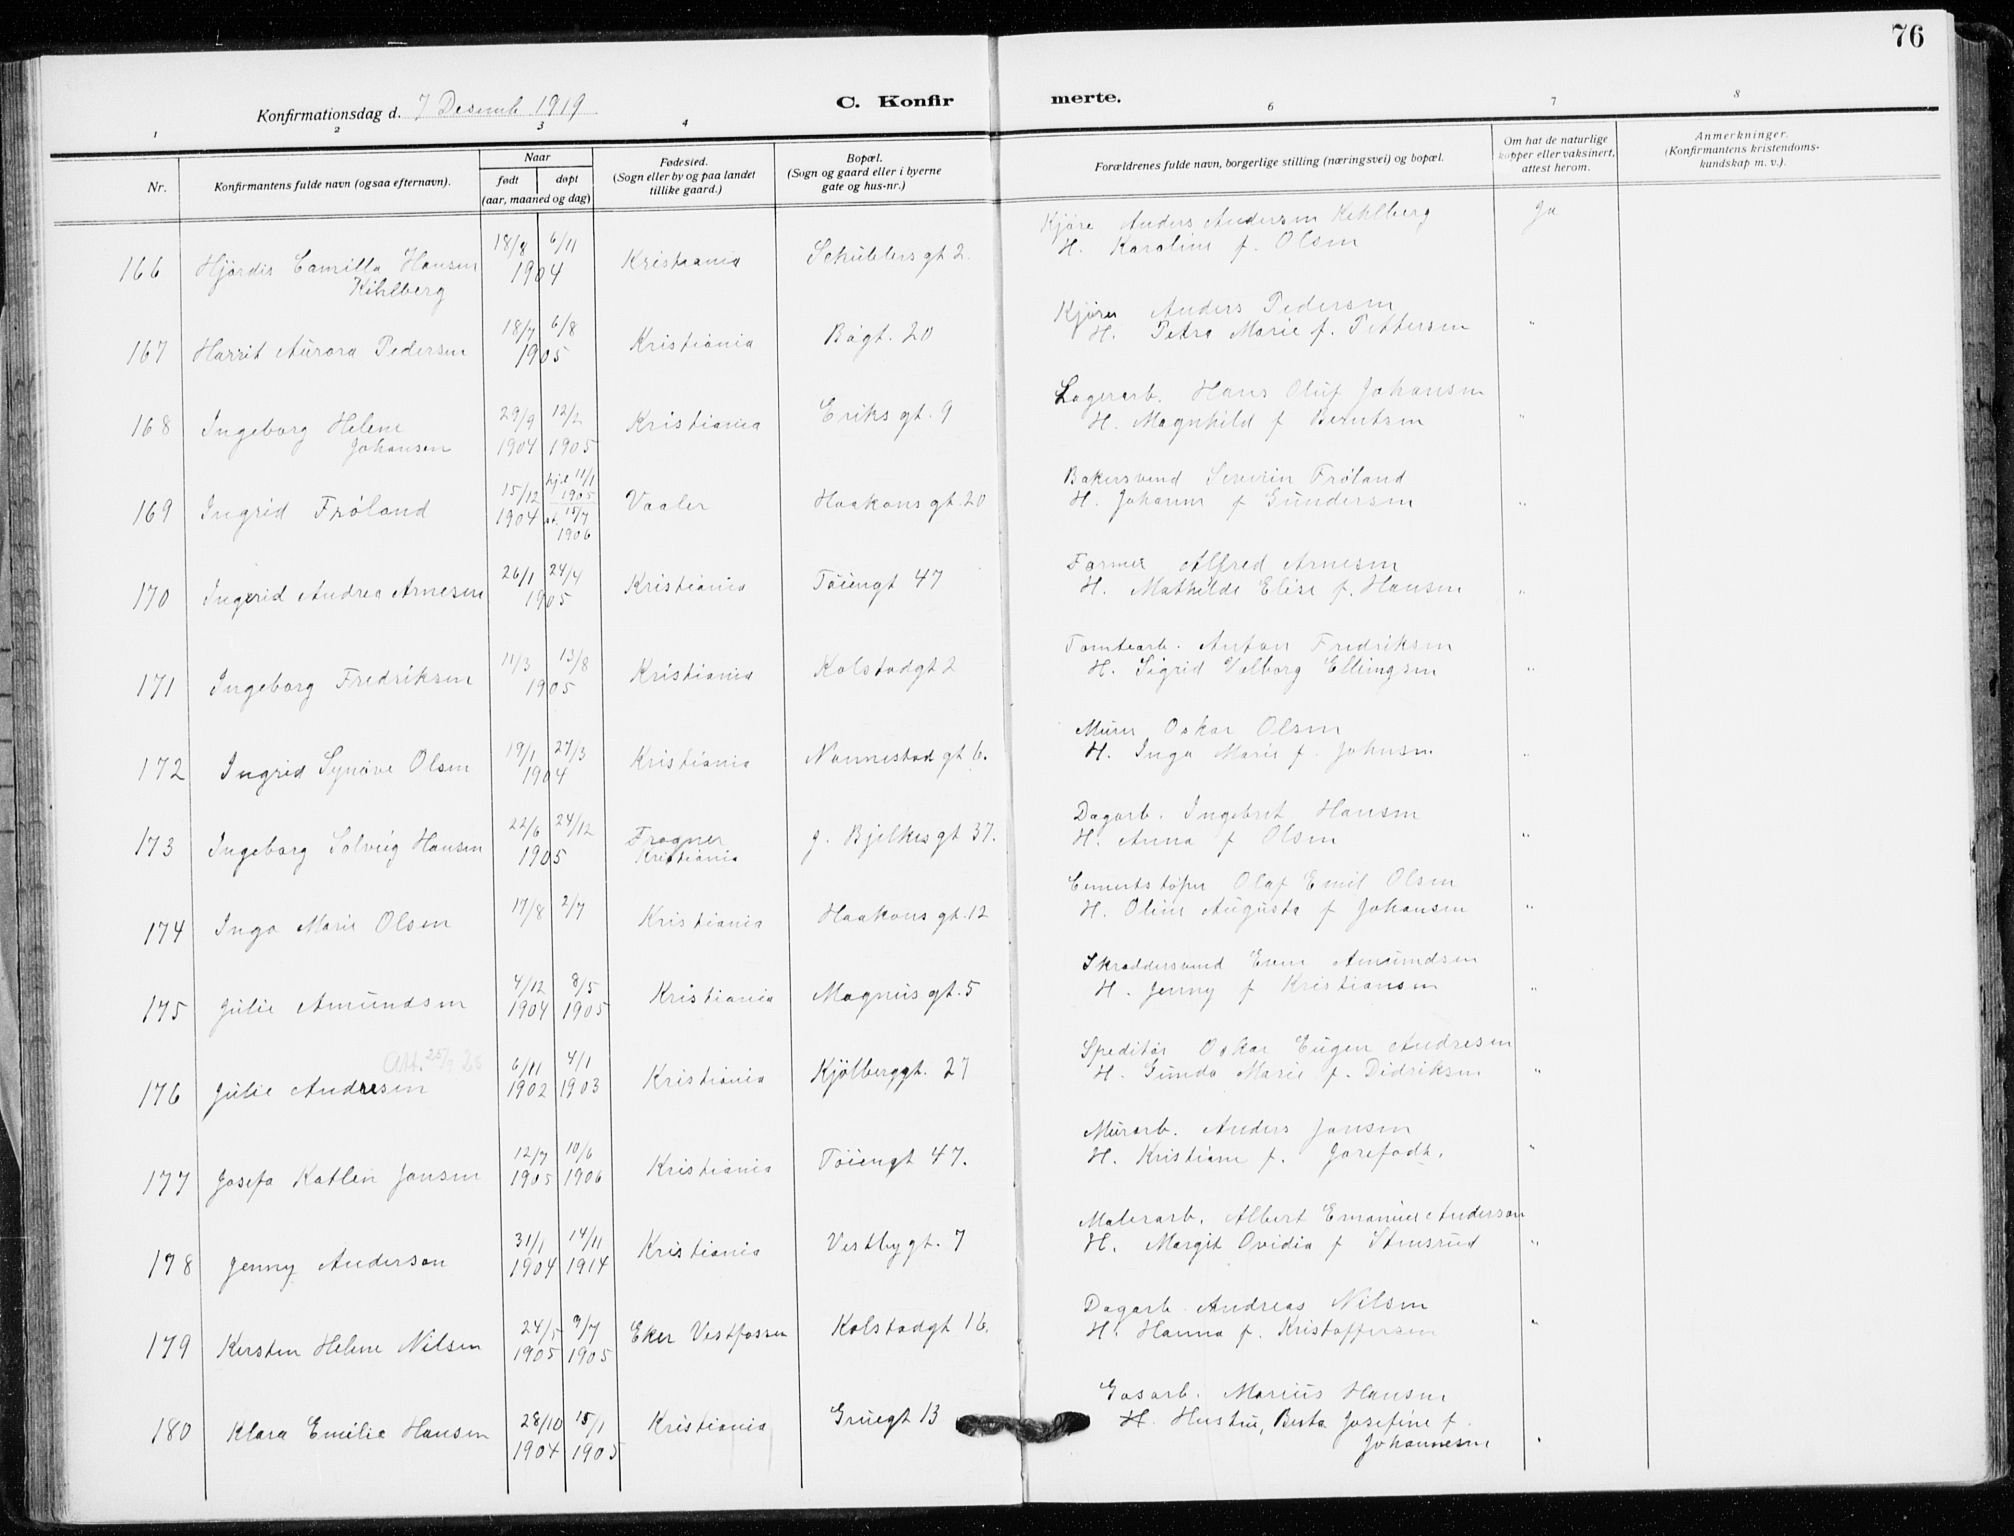 76
Konfirmationsdag d. 7 Desemb 1919
C. Konfir merte.
1 2 3 4 6 7 8
Nr.
Konfirmantens fulde navn (ogsaa efternavn).
Naar
født døpt
(aar, maaned og dag)
Fødested.
(Sogn eller by og paa landet
tillike gaard.)
Bopæl.
(Sogn og gaard eller i byerne
gate og hus-nr.)
Forældrenes fulde navn, borgerlige stilling (næringsvei) og bopæl.
Om hat de naturlige
kopper eller vaksinert,
attest herom.
Anmerkninger.
(Konfirmantens kristendoms-
kundskap m. v.).
Kjøre Anders Andersen Kihlberg Ja
18/8 6/11 H. Karoline f. Olsen
166 Hjørdis Camilla Hansen 1904 Kristiania Schüblers gt 2.
Kihlberg
Kjører Anders Pedersen
18/7 6/8 H. Petra Marie f. Pettersen "
167 Harrit Aurora Pedersen 1905 Kristiania Bøgt. 20
Lagerarb. Hans Oluf Johansen
29/9 12/2 H. Magnhild f Berntsen "
168 Ingeborg Helene Kristiania Eriks gt. 9
Johansen 1904 1905
hj.d 11/1 Bakersvend Severin Frøland
15/12 1905 H. Johanne f Gundersen "
169 Ingrid Frøland 1904 15/7 Vaaler Haakons gt. 20
1906
Farmer Alfred Arnesen
26/1 24/4 H. Mathilde Elise f. Hansen "
170 Ingerid Andrea Arnesen 1905 Kristiania Tøiengt 47
Tomtearb. Anton Fredriksen
11/3 13/8 H. Sigrid Valborg Ellingsen "
171 Ingeborg Fredriksen 1905 Kristiania Kolstadgt 2
Murer Oskar Olsen
19/1 27/3 H. Inga Marie f. Johnsen "
172 Ingrid Synøve Olsen 1904 Kristiania Nannestad gt 6.
Dagarb. Ingebret Hansen
22/6 24/12 Frogner H. Anna f Olsen "
173 Ingeborg Solveig Hansen 1905 Kristiania J. Bjelkes gt 37.
Cementstøper Olaf Emil Olsen
17/8 2/7 H. Oline Augusta f Johansen "
174 Inga Marie Olsen Kristiania Haakons gt. 12
Skræddersvend Even Amundsen
4/12 8/5 H. Jenny f Kristiansen "
175 Julie Amundsen 1904 1905 Kristiania Magnus gt. 5
Att. 25/9 28 Speditør Oskar Eugen Andresen
6/11 4/1 H. Gunda Marie f. Didriksen "
176 Julie Andresen 1902 1903 Kristiania Kjølberggt. 27
Murarb. Anders Jansen
12/7 10/6 H. Kristiane f. "
177 Josefa Katlin Jansen 1905 1906 Kristiania Tøiengt 47.
Malerarb. Albert Emanuel Anderson
31/1 14/11 H. Margit Ovidia f Stensrud "
178 Jenny Anderson 1904 1914 Kristiania Vestbygt. 7
Dagarb. Andreas Nilsen
24/5 9/7 H. Hanna f. Kristoffersen "
179 Kirsten Helene Nilsen 1905 1905 Eker Vestfossen Kolstadgt 16.
Gasarb. Marius Hansen
28/10 15/1 H. Hustru, Berta Josefine f.
180 Klara Emilie Hansen 1904 1905 Kristiania Gruegt 13 Johannesen "